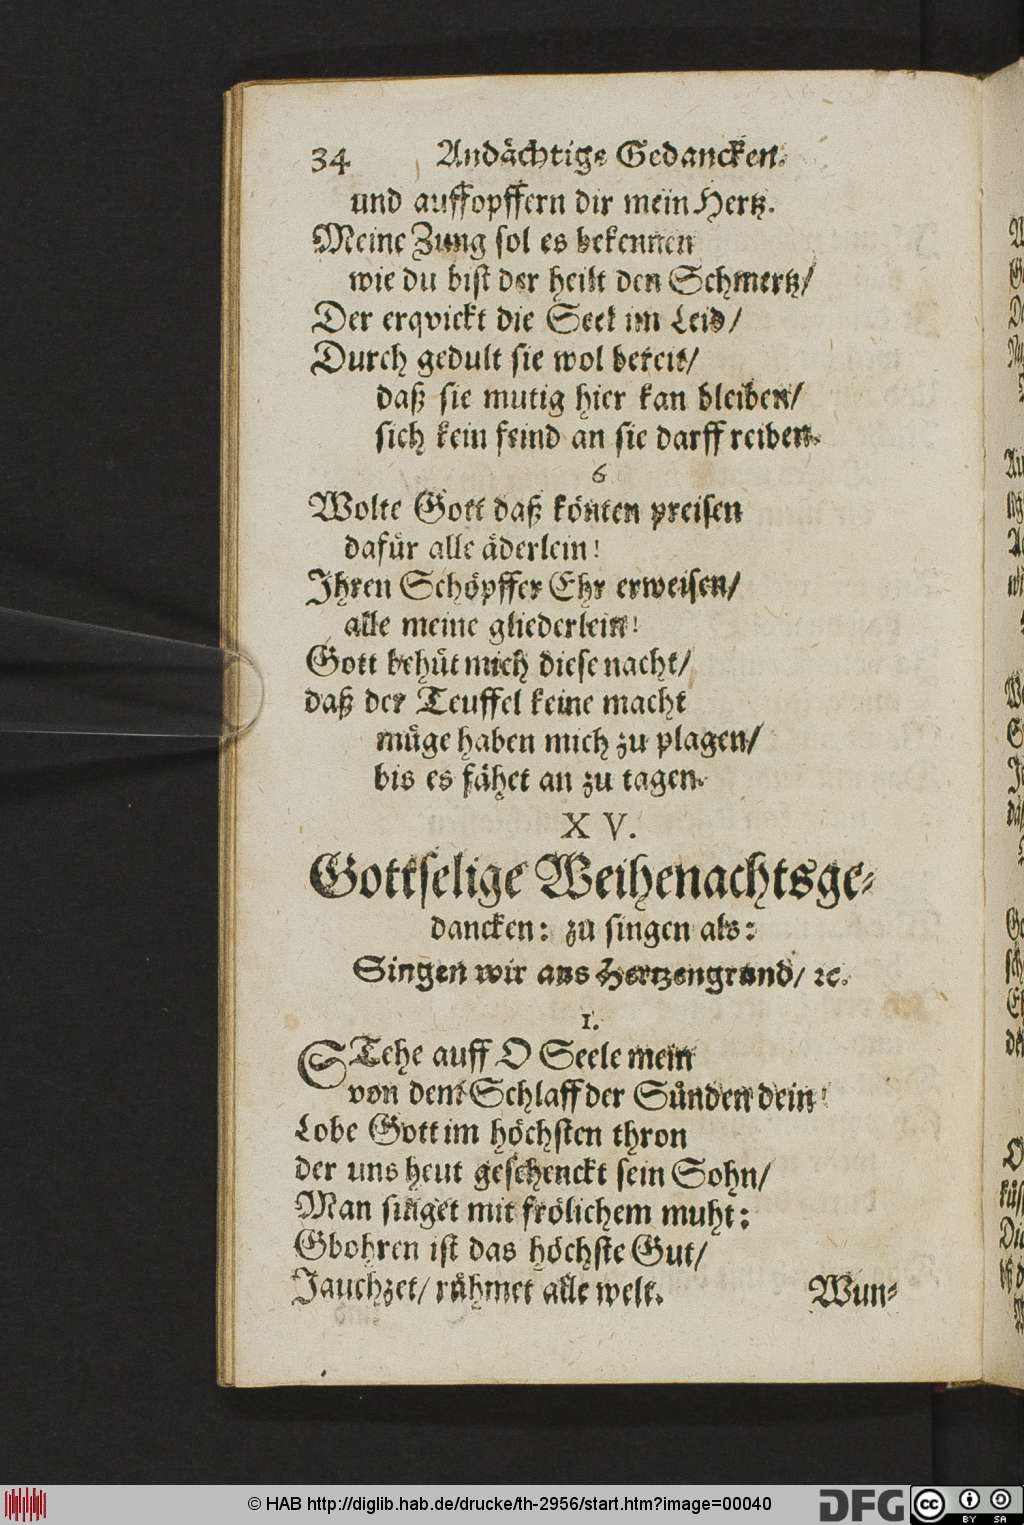 34 Andächtige Gedancken.
und auffopffern dir mein Hertz.
Meine Zung sol es bekennen
wie du bist der heilt den Schmertz/
Der erqvickt die Seel im Leid/
Durch gedult sie wol bereit/
daß sie mutig hier kan bleiben/
sich kein feind an sie darff reiben.
6
Wolte Gott daß könten preisen
dafür alle äderlein!
Ihren Schöpffer Ehr erweisen/
alle meine gliederlein!
Gott behüt mich diese nacht/
daß der Teuffel keine macht
müge haben mich zu plagen/
bis es fähet an zu tagen.
XV.
Gottselige Weihenachtsge-
dancken: zu singen als:
Singen wir aus Hertzengrund/ ꝛc.
1.
STehe auff O Seele mein
von dem Schlaff der Sünden dein!
Lobe Gott im höchsten thron
der uns heut geschenckt sein Sohn/
Man singet mit frölichem muht:
Gbohren ist das höchste Gut/
Jauchzet/ rühmet alle welt.
Wun-
© HAB http://diglib.hab.de/drucke/th-2956/start.htm?image=00040
DFG
cc BY SA